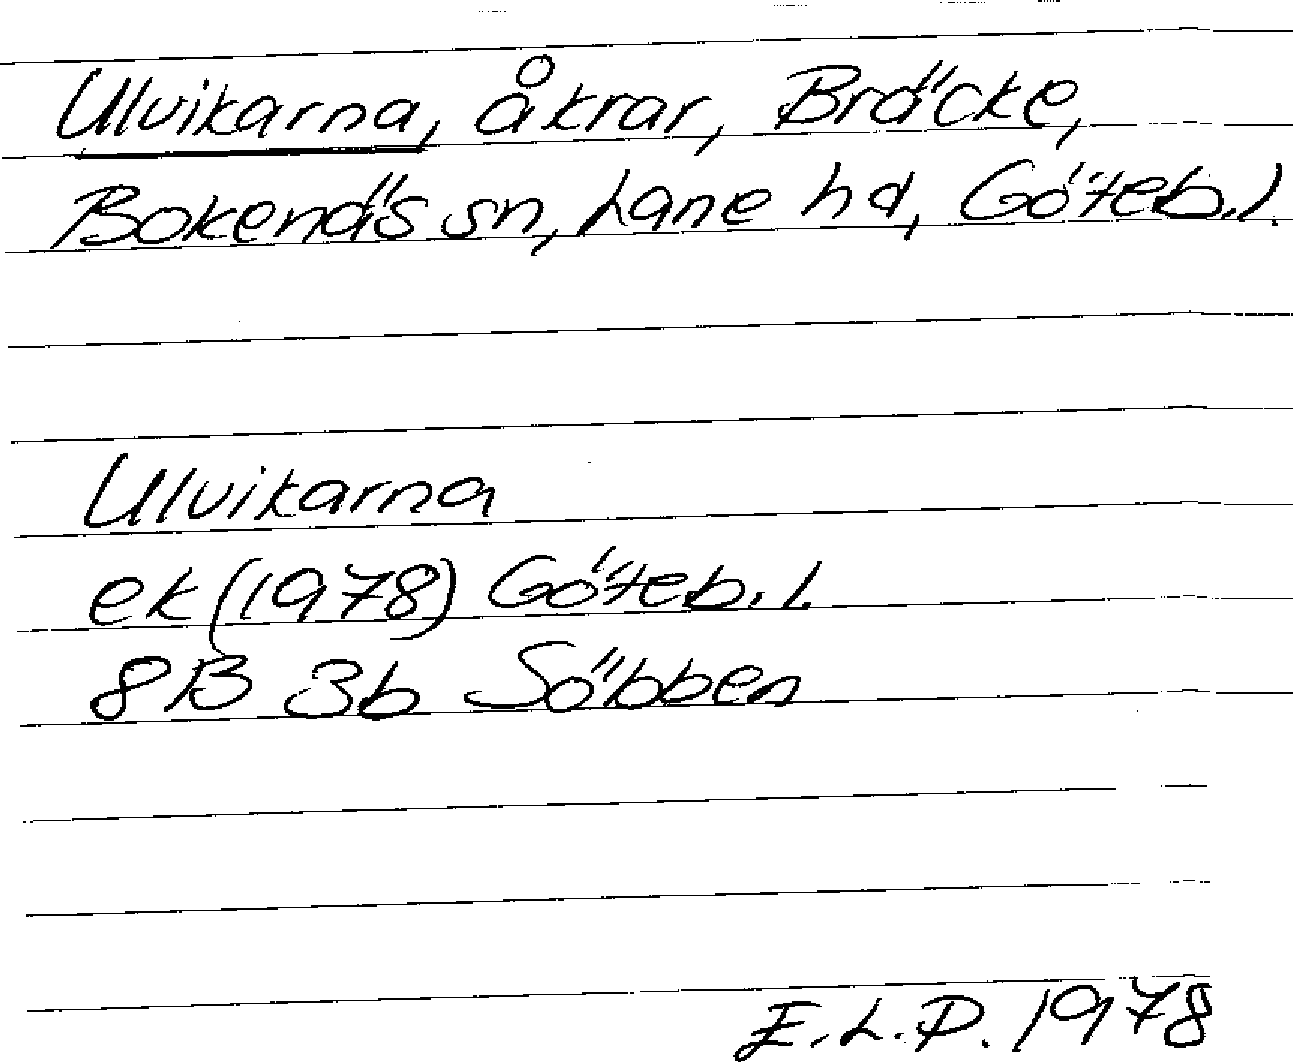 Ulvikarna, åkrar, Bräcke,
Bokenäs sn, Lane hd, Göteb.l.
Ulvikarna
ek (1978) Göteb.l.
8B 3b Söbben
E.L.P. 1978